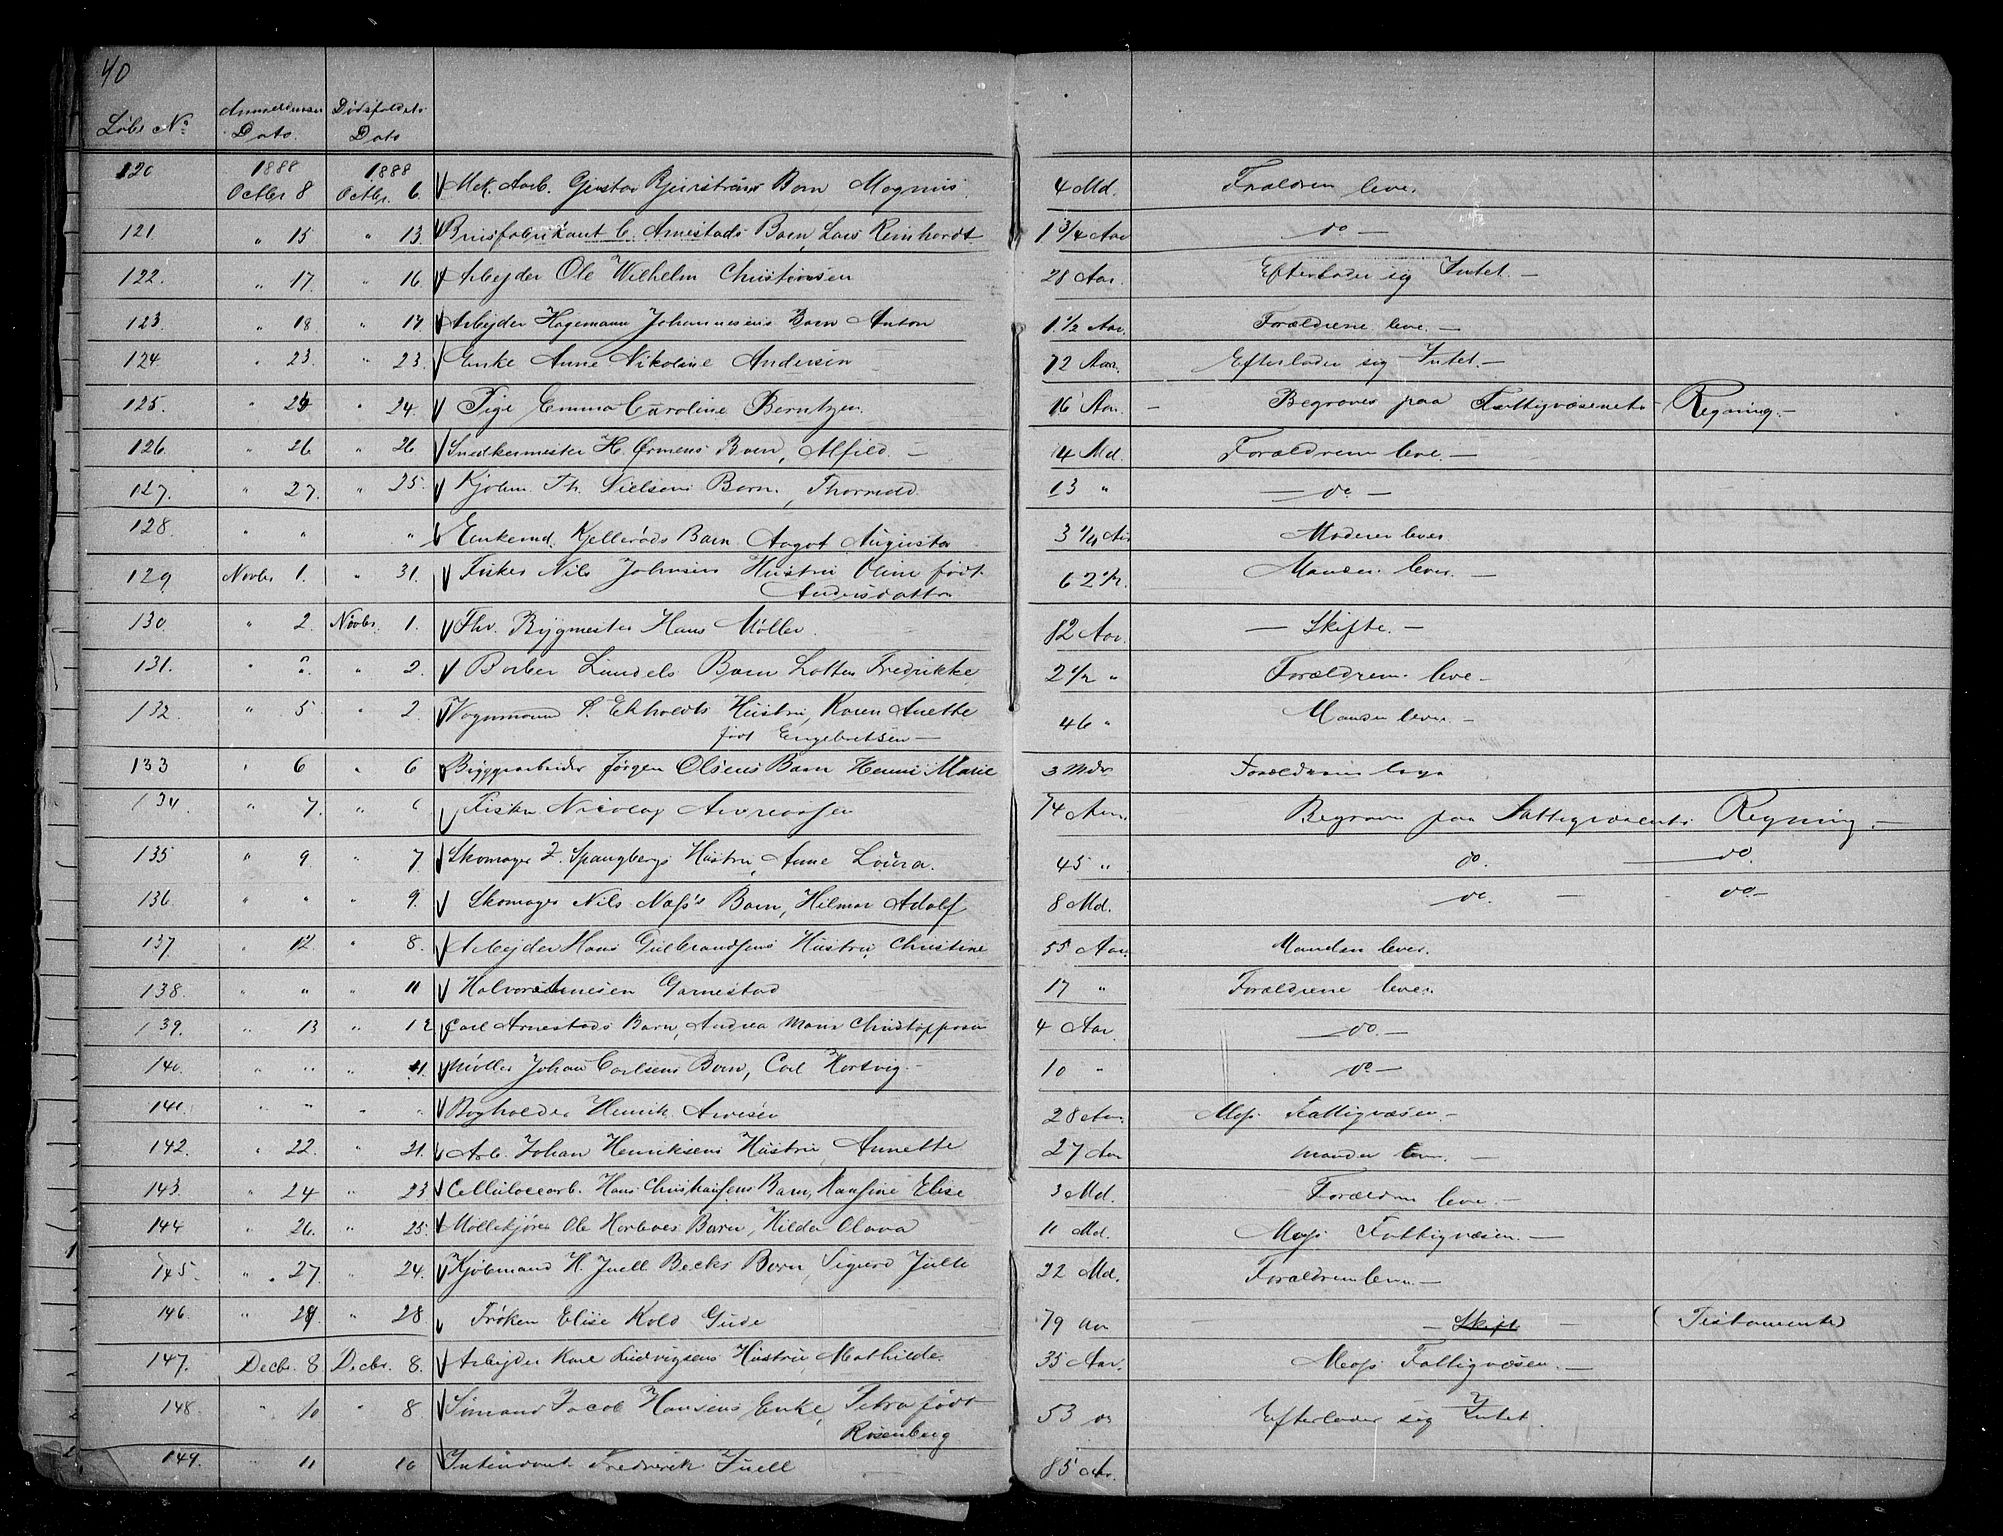 40
Løbe No Anmeldelsens Dato. Dødsfaldets Dato
120 1888 Octbr 8 1888 Octbr. 6 Mek. Arb. Gustav Barn, Magnus 4 Md. Forældren leve.
121. " 15 " 13. Brusfabrikant C. Arnestads Barn, Lars Reinhardt 1 3/4 Aar do —
122. " 17. " 16. Arbejder Ole Wilhelm Christiansen 28 Aar. Efterlader sig Intet. —
123. " 18 " 17. Arbejder Hagemann Johannesens Barn Anton 1 1/2 Aar. Forældrene leve. —
124. " 23. " 23. Enke Anne Nikoline Andersen 72 Aar. Efterlader sig Intet. —
125. " 24. Pige Emma Caroline Berntzen 16 Aar. — Begraves paa Fattigvæsenets Regning. —
126. " 26 " 26 Snedkermester H. Ørmens Barn, Alfild. — 4 Md. Forældrene leve. —
127. " 27. " 25. Kjøbm. Th. Nielsens Barn, Thorvald. 13 " — do —
128. " " " Enkemd. Kjellerøds Barn Aagot Augusta 3 1/4 Aar Moderen lever
129 Novbr 1. " 31. Fisker Nils Johnsens Hustru Oline født
Andersdatter 62 1/2. Manden lever. —
130. " 2. Novbr. 1. Fhv. Bygmester Hans Møller. 82 Aar. — Skifte. —
131. " " " 2. Barber Lundels Barn Lotten Fredrikke, 2 1/2 " Forældrene leve —
132. " 5 " 2. Vognmand S. Ekholdts Hustru, Karen Anette
født Engebretsen — 46 " Manden lever. —
133 " 6 " 6 Bryggearbeider Jørgen Olsens Barn Henni Marie 3 Mdr Forældrene leve
134. " 7. " 6 Fisker Nicolay Andreassen 74 Aar. Begraves paa Fattigvæsenets Regning. —
135 " 9. " 7. Skomager J. Spangbergs Hustru, Anne Loüra. 45 " do. — do.
136 " " " 9. Skomager Nils Næss's Barn, Hilmar Adolf 8 Md. do. — do —
137. " 12. " 8. Arbejder Hans Gulbrandsens Hustru, Christine 55 Aar. Manden lever.
138. " " " 11 Halvor Garnestad 17 " Forældrene lever.
139. " 13 " 12 Carl Arnestads Barn, Andrea Christopposen 4 Aar. do. —
140. " " " 11. Møller Johan Carlsens Barn, Carl Hartvig. — 10 " do —
141. " " " " Bogholder Henrik Arnesen 28 Aar Moss Fattigvæsen —
142. " 22. " 21. Arb. Johan Henriksens Hustru Annette 27 Aar manden lever. —
143. " 24 " 23 Cellulosearb. Hans Christiansens Barn, Hansine Elise 3 Md. Forældren leve. —
144 " 26. " 25. Møllekjører Ole Barn, Hilda Olava 11 Md. Moss Fattigvæsen. —
145. " 27. " 24. Kjøbmand H. Juell Becks Barn, Sigurd Julle 22 Md. Forældrene leve —
146. " 29 " 28 Frøken Elise Kold Gude 79 Aar — Skifte — (Testamente)
147. Decbr. 8 Decbr. 8. Arbejder Karl Ludvigsens Hustru Mathilde. 35 Aar. Moss Fattigvæsen. —
148. " 10 " 8. Sømand Jacob Hansens Enke, Petra født
Rosenberg 53 do Efterlader sig Intet.
149. " 11 " 10 Intendant Fredrik Juell 85 Aar.